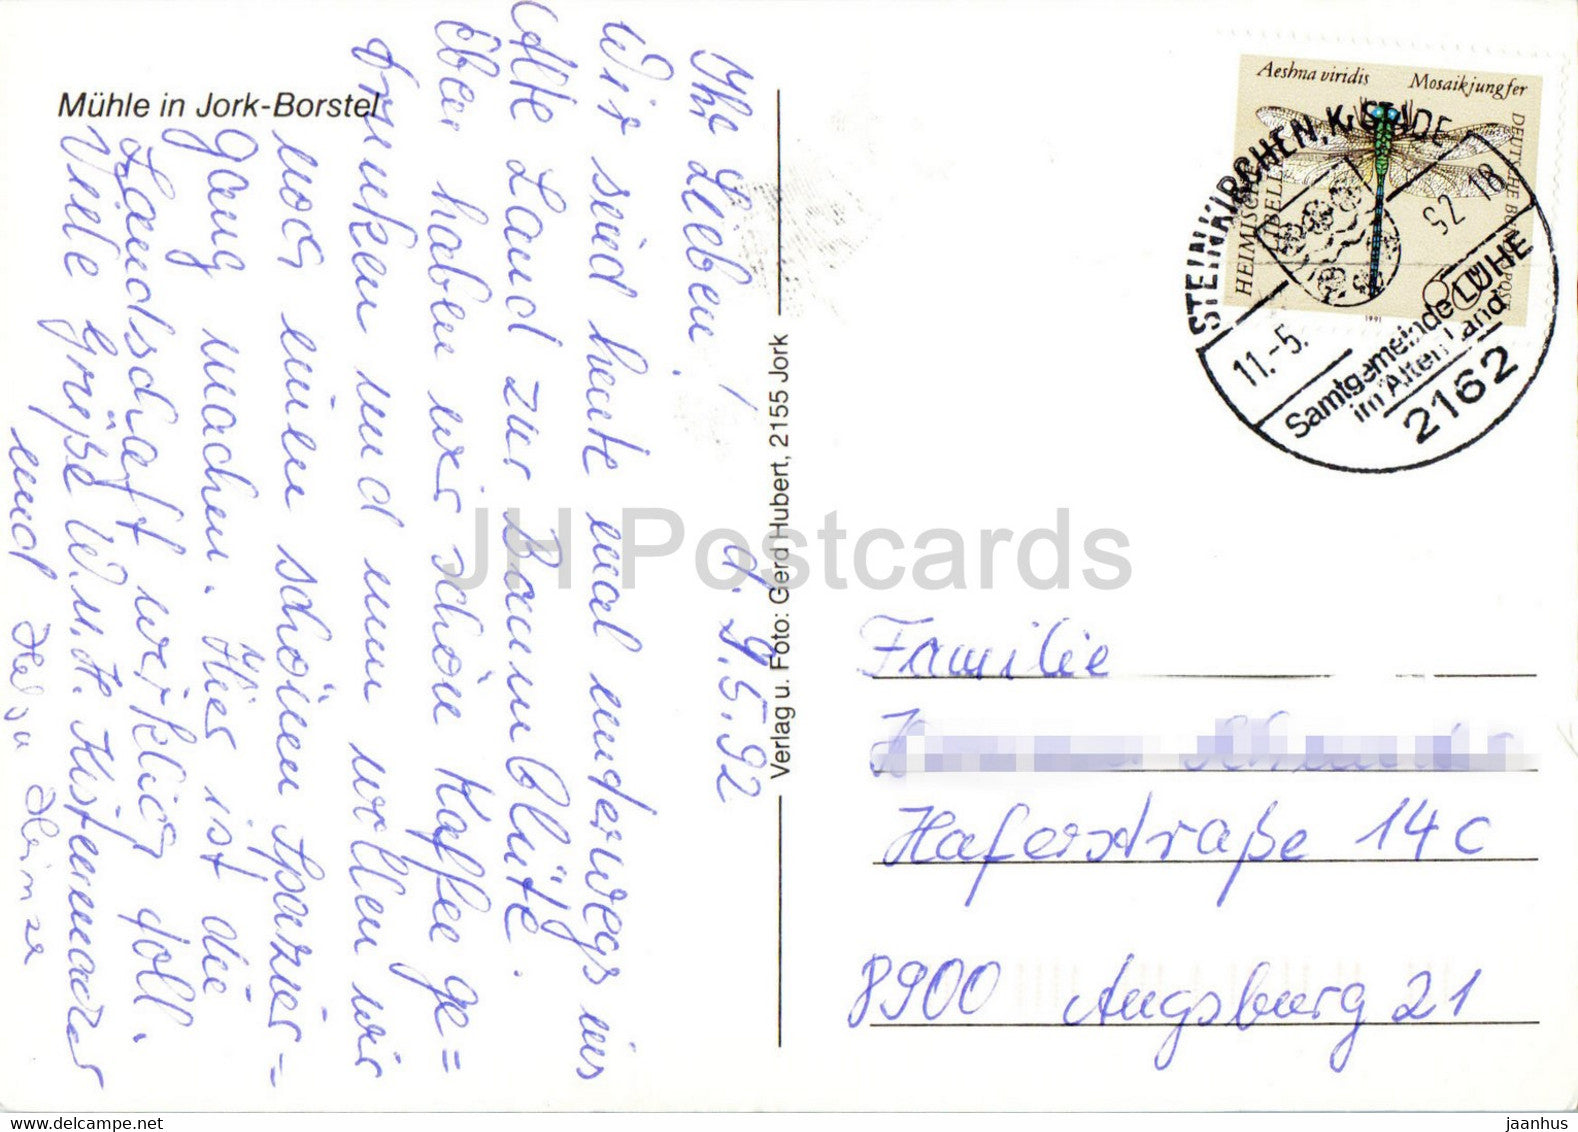 Mühle in Jork-Borstel
d. 9.5.92
Ihr Lieben!
Wir sind heute mal unterwegs ins
Alte Land zur Baumblüte.
Eben haben wir schön Kaffee ge=
trunken und nun wollen wir
noch einen schönen Spazier=
gang machen. Hier ist die
Landschaft wirklich toll.
Viele Grüße W. u. H.
und Heinze
Verlag u. Foto: Gerd Hubert, 2155 Jork
Aeshna viridis Mosaikjungfer
HEIMISCHE
LIBELLEN
DEUTSCHE BUNDESPOST
1991
STEINKIRCHEN, KR STADE
11.-5. 92.18
Samtgemeinde LÜHE
im Alten Land
2162
Familie
Haferstraße 14c
8900 Augsburg 21
JH Postcards
HipPostcard
jaanhus